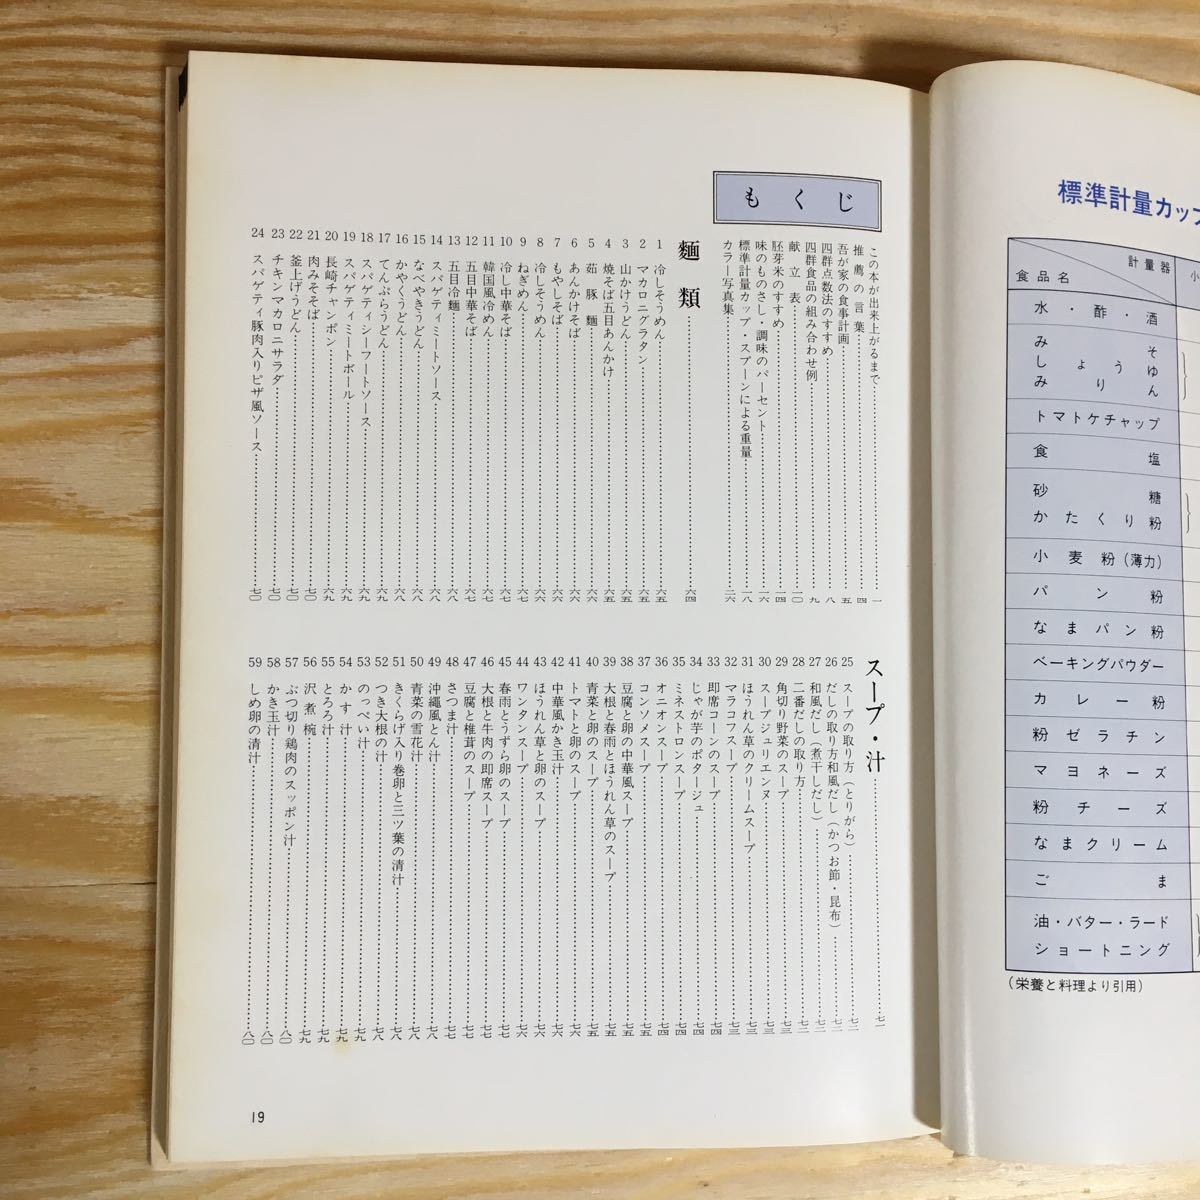 もくじ
この本が出来上がるまで……一
推薦の言葉……四
吾が家の食事計画……五
四群点数法のすすめ……八
四群食品の組み合わせ例……九
献立表……一〇
胚芽米のすすめ……一四
味のものさし・調味のパーセント……一六
標準計量カップ・スプーンによる重量……一八
カラー写真集……二六
麺類……六四
1 冷しそうめん……六五
2 マカロニグラタン……六五
3 山かけうどん……六五
4 焼そば五目あんかけ……六五
5 茹豚麺……六六
6 あんかけそば……六六
7 もやしそば……六六
8 冷しそうめん……六六
9 ねぎめん……六七
10 冷し中華そば……六七
11 韓国風冷めん……六七
12 五目中華そば……六七
13 五目冷麺……六八
14 スパゲティミートソース……六八
15 なべやきうどん……六八
16 かやくうどん……六八
17 てんぷらうどん……六九
18 スパゲティシーフートソース……六九
19 スパゲティミートボール……六九
20 長崎チャンポン……六九
21 肉みそそば……七〇
22 釜上げうどん……七〇
23 チキンマカロニサラダ……七〇
24 スパゲティ豚肉入りピザ風ソース……七〇
スープ・汁……七一
25 スープの取り方(とりがら)……七二
26 だしの取り方和風だし(かつお節・昆布)……七二
27 和風だし(煮干しだし)……七二
28 二番だしの取り方……七二
29 角切り野菜のスープ……七三
30 スープジュリエンヌ……七三
31 ほうれん草のクリームスープ……七三
32 マラコフスープ……七三
33 即席コーンのスープ……七四
34 じゃが芋のポタージュ……七四
35 ミネストロンスープ……七四
36 オニオンスープ……七四
37 コンソメスープ……七五
38 豆腐と卵の中華風スープ……七五
39 大根と春雨とほうれん草のスープ……七五
40 青菜と卵のスープ……七五
41 トマトと卵のスープ……七六
42 中華風かき玉汁……七六
43 ほうれん草と卵のスープ……七六
44 ワンタンスープ……七六
45 春雨とうずら卵のスープ……七七
46 大根と牛肉の即席スープ……七七
47 豆腐と椎茸のスープ……七七
48 さつま汁……七七
49 沖縄風とん汁……七八
50 青菜の雪花汁……七八
51 きくらげ入り巻卵と三ツ葉の清汁……七八
52 つき大根の汁……七八
53 のっぺい汁……七九
54 かす汁……七九
55 とろろ汁……七九
56 沢煮椀……七九
57 ぶつ切り鶏肉のスッポン汁……八〇
58 かき玉汁……八〇
59 しめ卵の清汁……八〇
19
標準計量カップ
計量器
食品名
小
水・酢・酒
みそ
しょうゆ
みりん
トマトケチャップ
食塩
砂糖
かたくり粉
小麦粉(薄力)
パン粉
なまパン粉
ベーキングパウダー
カレー粉
粉ゼラチン
マヨネーズ
粉チーズ
なまクリーム
ごま
油・バター・ラード
ショートニング
(栄養と料理より引用)